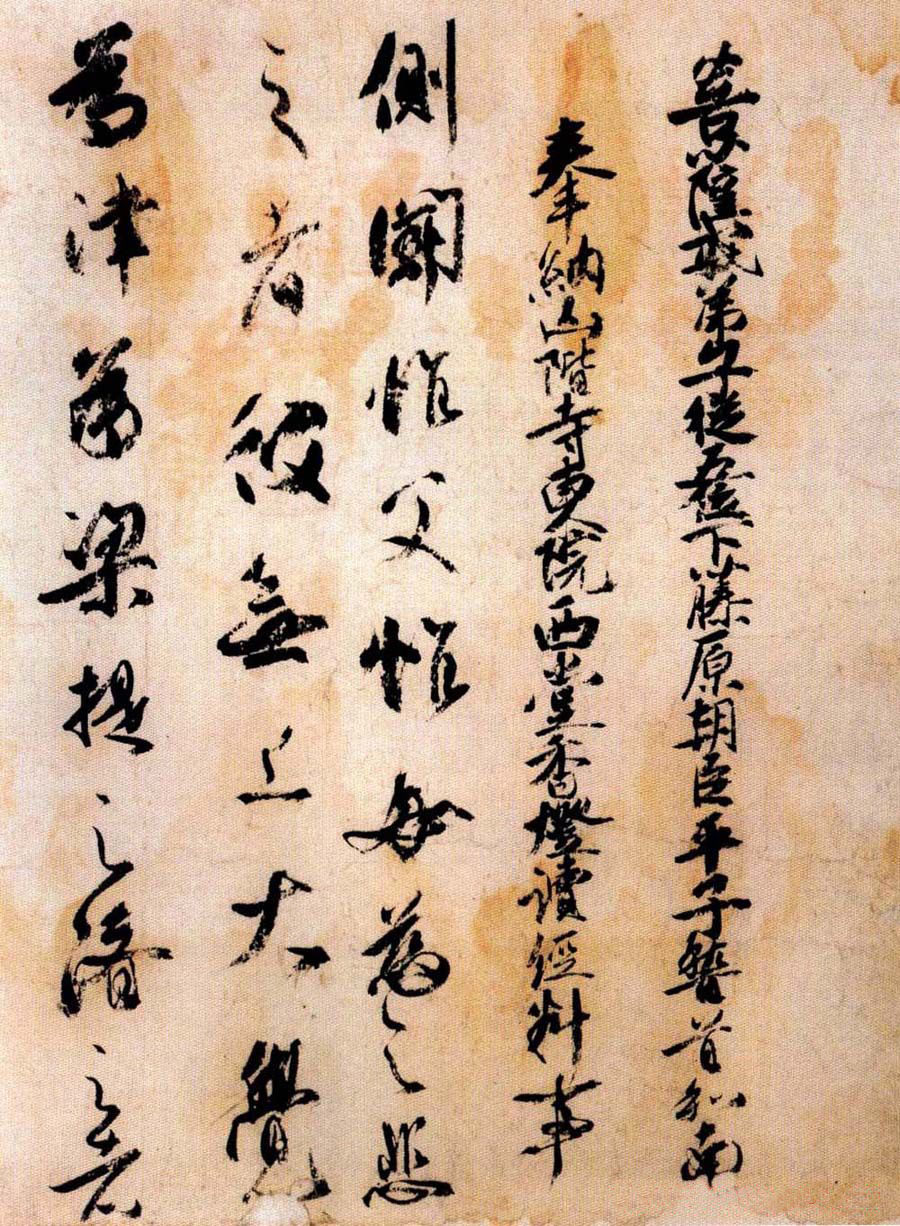 菩薩戒弟子從五位下藤原朝臣平子稽首和南
奉納山階寺東院西堂香燈讀經料事
側聞惟父惟母慈之悲
之者彼無上大覺
為津為梁提之濟之者